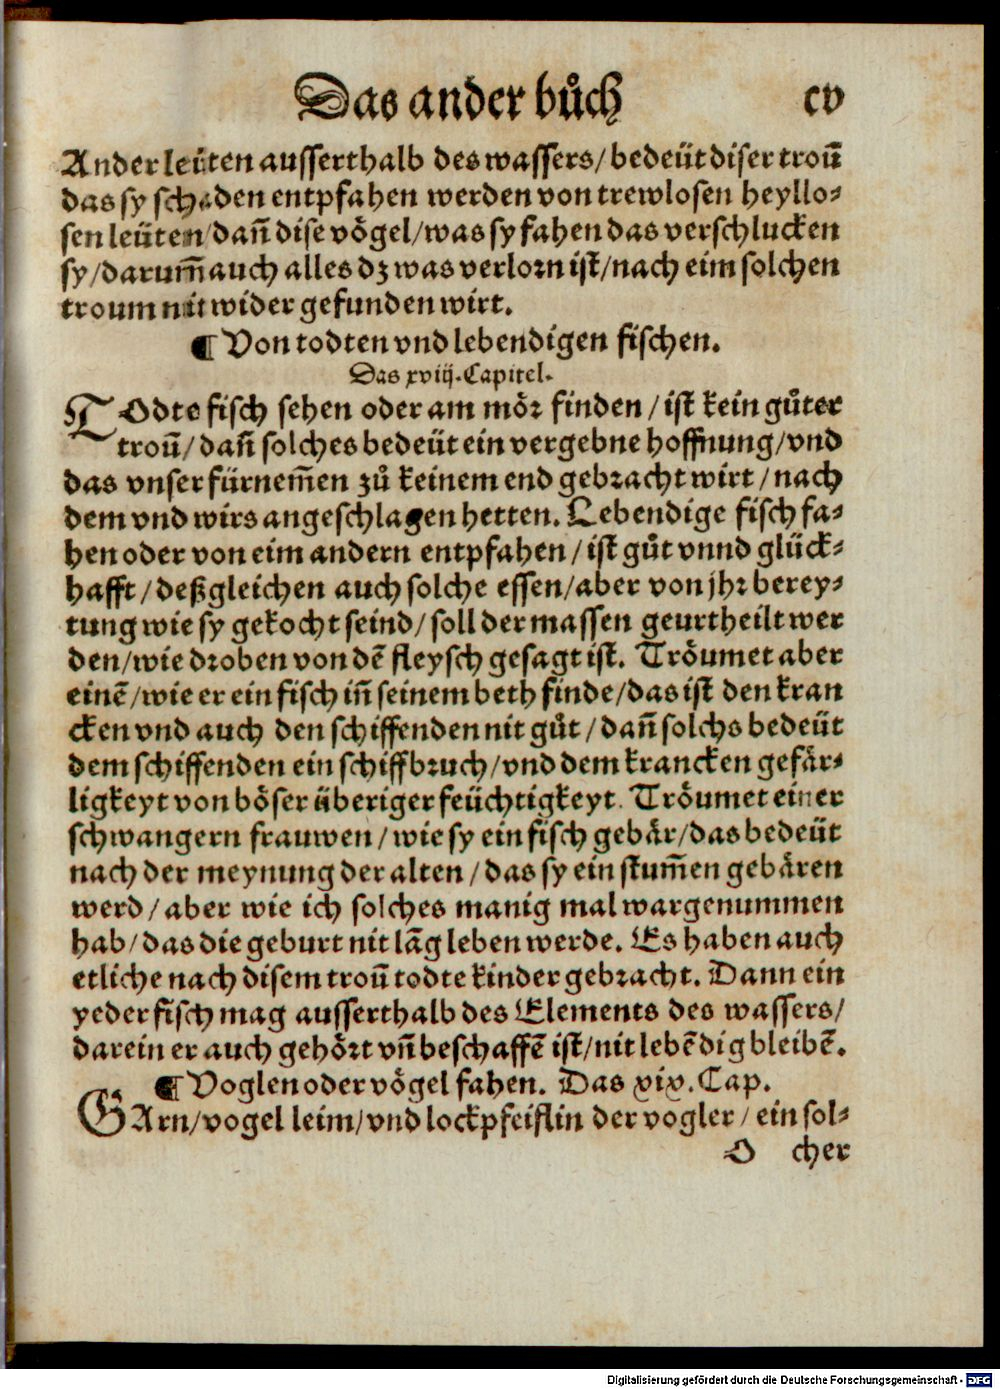 Das ander bůch cv
Ander leüten ausserthalb des wassers/ bedeüt diser troum̄
das sy schaden entpfahen werden von trewlosen heyllo-
sen leüten/ dañ dise vögel/ was sy fahen das verschlucken
sy/ darum̄ auch alles dz was verlorn ist/ nach eim solchen
troum nit wider gefunden wirt.
¶ Von todten vnd lebendigen fischen.
Das xviij. Capitel.
TOdte fisch sehen oder am mör finden/ ist kein gůter
troum̄/ dañ solches bedeüt ein vergebne hoffnung/ vnd
das vnser fürnem̄en zů keinem end gebracht wirt/ nach
dem vnd wirs angeschlagen hetten. Lebendige fisch fa-
hen oder von eim andern entpfahen/ ist gůt vnnd glück-
hafft/ deßgleichen auch solche essen/ aber von jhr berey-
tung wie sy gekocht seind/ soll der massen geurtheilt wer
den/ wie droben von dē fleysch gesagt ist. Tröumet aber
einē/ wie er ein fisch iñ seinem beth finde/ das ist den kran
cken vnd auch den schiffenden nit gůt/ dañ solchs bedeüt
dem schiffenden ein schiffbruch/ vnd dem krancken gefär-
ligkeyt von böser überiger feüchtigkeyt. Tröumet einer
schwangern frauwen/ wie sy ein fisch gebär/ das bedeüt
nach der meynung der alten/ das sy ein stum̄en gebären
werd/ aber wie ich solches manig mal wargenummen
hab/ das die geburt nit lāg leben werde. Es haben auch
etliche nach disem troum̄ todte kinder gebracht. Dann ein
yeder fisch mag ausserthalb des Elements des wassers/
darein er auch gehört vñ beschaffē ist/ nit lebēdig bleibē.
¶ Voglen oder vögel fahen. Das xix. Cap.
GArn/ vogel leim/ vnd lockpfeiflin der vogler/ ein sol-
O cher
Digitalisierung gefördert durch die Deutsche Forschungsgemeinschaft - DFG